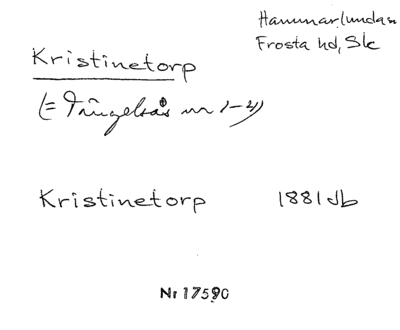 Hammarlunda sn
Frosta hd, Sk
Kristinetorp
(= nr 1-4)
Kristinetorp 1881 Jb
Nr 17590